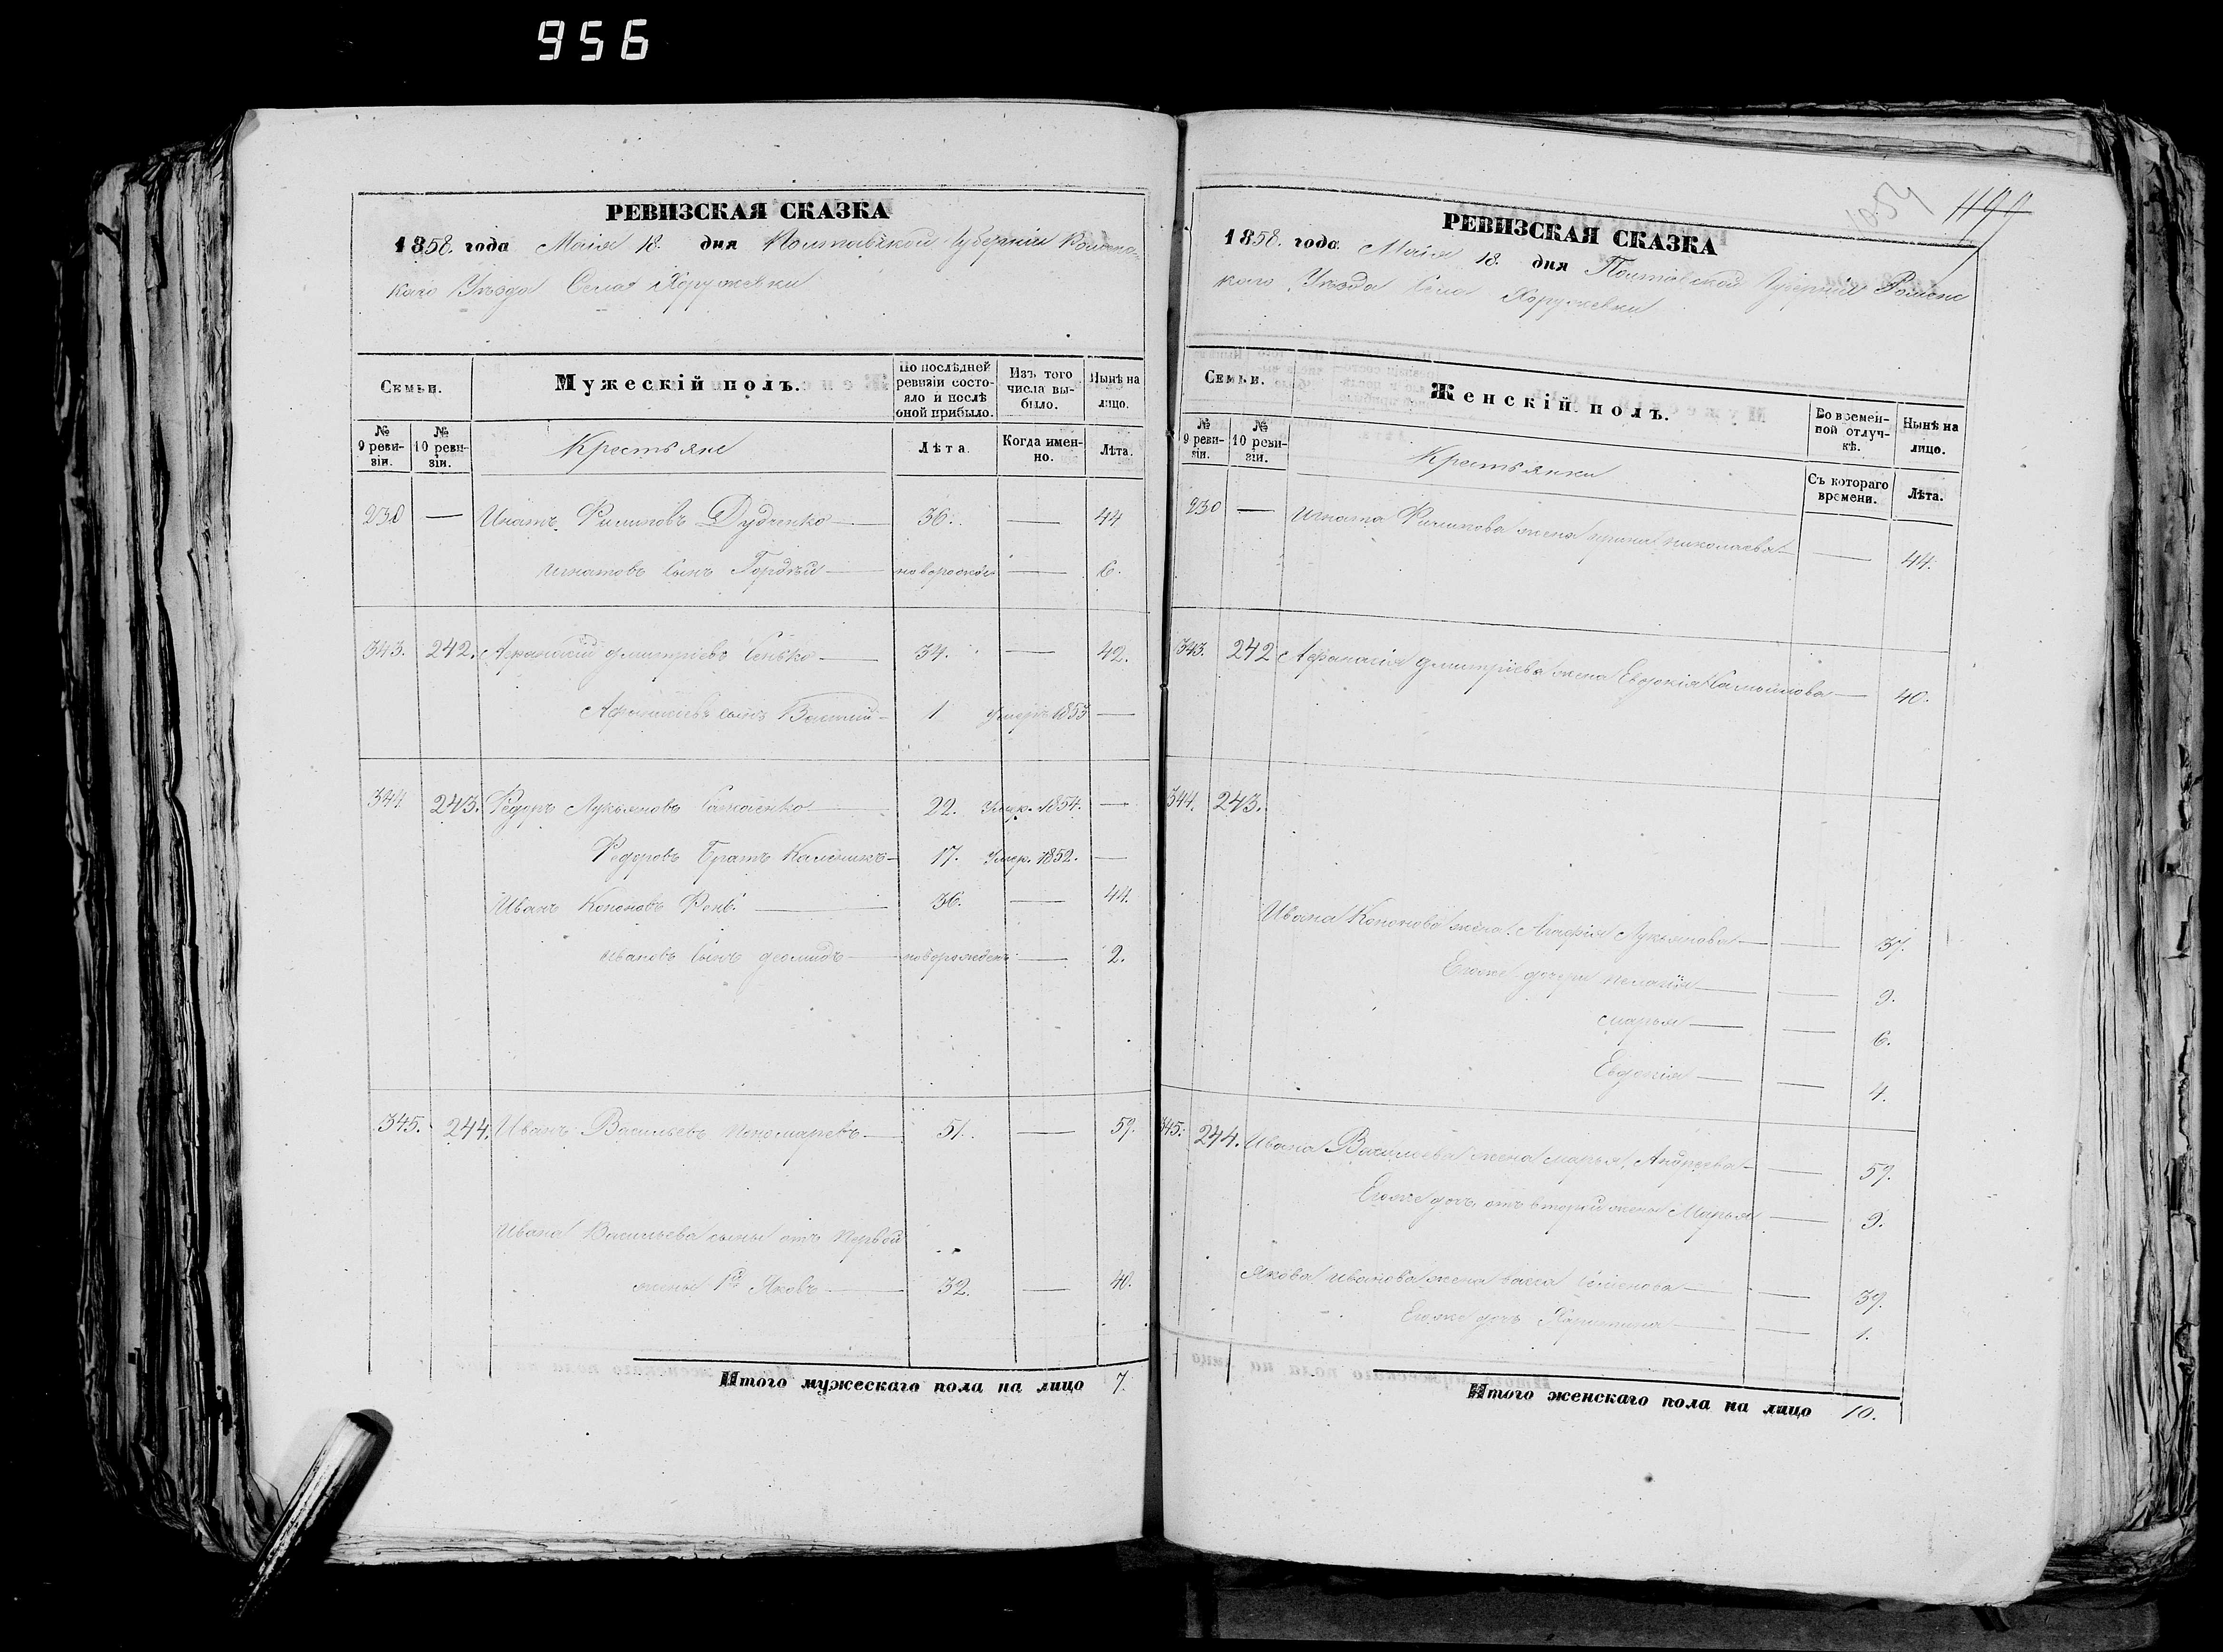 956
РЕВИЗСКАЯ СКАЗКА
1858. года Маія 18. дня Полтавской Губерніи Роменс-
каго Уѣзда Села Хоружевки
Семьи.
Мужескій полъ.
По послѣдней ревизіи состояло и послѣ оной прибыло.
Изъ того числа выбыло.
Нынѣ на лицо.
№ 9 ревизіи.
№ 10 ревизіи.
Крестьяне
Лѣта.
Когда именно.
Лѣта.
230 — Игнатъ Филиповъ Дудченко — 36. — 44
Игнатовъ сынъ Гордѣй — новорожден — 6.
343. 242. Афанасій Дмитріевъ Сенько — 34. — 42.
Афанасіевъ сынъ Василій — 1 Умеръ 1853 —
344 243. Федоръ Лукьяновъ — 22. Умер. 1854. —
Федоровъ Братъ Калиникъ — 17. Умер. 1852. —
Иванъ Кононовъ — 36. — 44.
Ивановъ Сынъ Деомидъ — новорожденъ — 2.
345. 244. Иванъ Васильевъ Пономаревъ — 51. — 59.
Ивана Васильева сыны отъ первой
жены 1й Яковъ — 32. — 40.
Итого мужескаго пола на лицо 7.
1054
1199
РЕВИЗСКАЯ СКАЗКА
1858. года Маія 18. дня Полтавской Губерніи Роменс
каго Уѣзда Села Хоружевки
Семьи.
Женскій полъ.
Во временной отлучкѣ.
Нынѣ на лицо.
№ 9 ревизіи.
№ 10 ревизіи.
Крестьянки
Съ котораго времени.
Лѣта.
230 — Игната Филипова жена Ирина Николаева — — 44.
343. 242 Афанасія Дмитріева жена Евдокія Самойлова — 40.
344. 243.
Ивана Кононова жена Агафія Лукьянова — — 37.
Егоже дочери Пелагія — — 9.
Марья — — 6.
Евдокія — — 4.
345. 244. Ивана Васильева жена Марья Андреева — — 59.
Егоже дочь отъ второй жены Марья — 9.
Якова Иванова жена Васса Семенова — — 39.
Егоже дочь Харитина — — 1.
Итого женскаго пола на лицо 10.